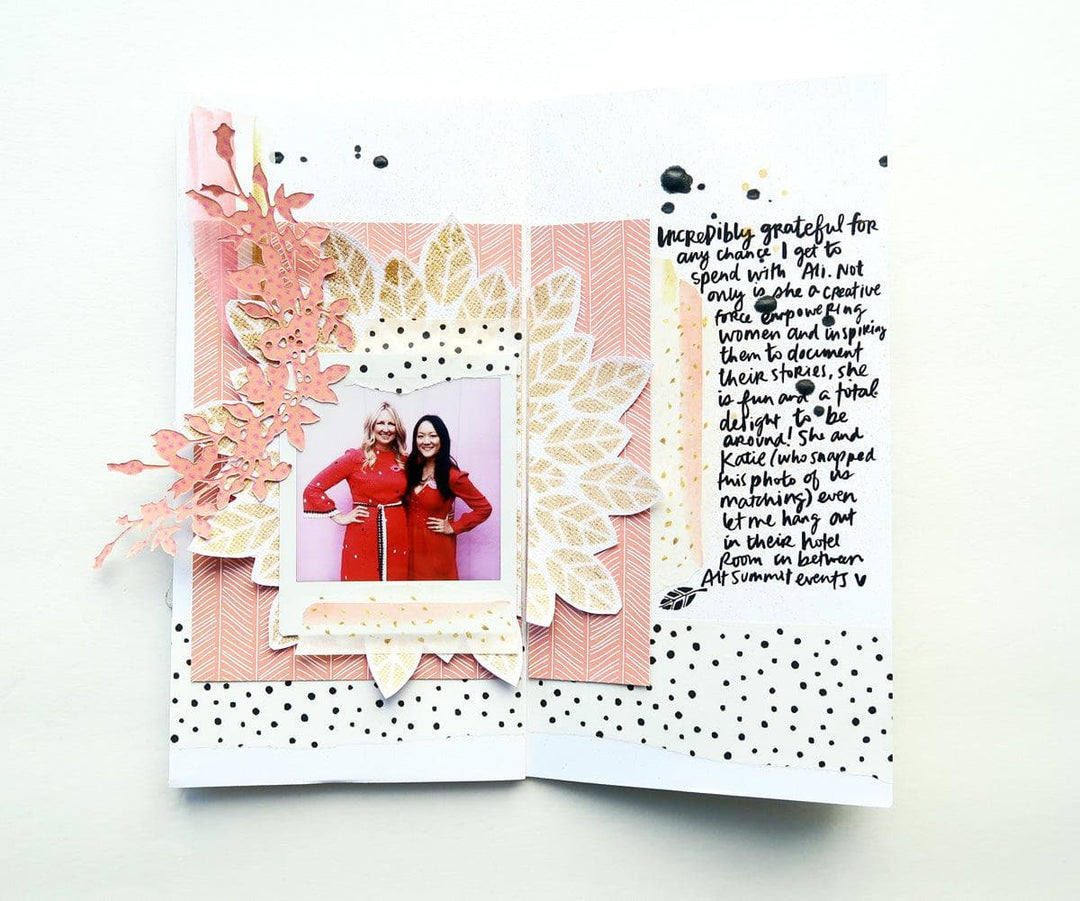 INCREDIBLY grateful for
any chance I get to
spend with Ali. Not
only is she a creative
force empowering
women and inspiring
them to document
their stories, she
is fun and a total
delight to be
around! She and
Katie (who snapped
this photo of us
matching) even
let me hang out
in their hotel
Room in between
Alt Summit events